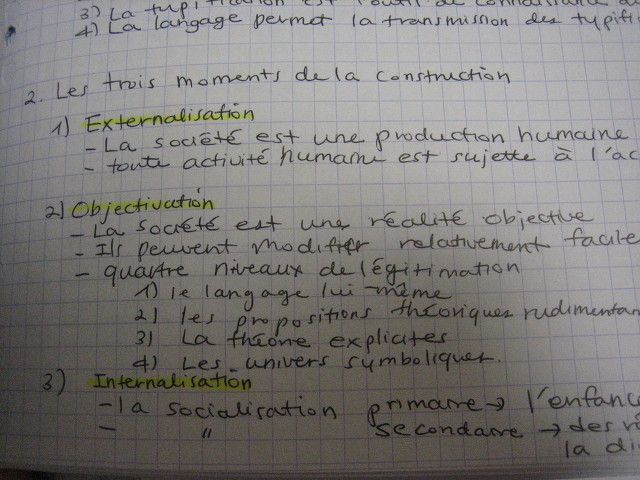 3) La typification est l'outil de connaissance
4) La langage permet la transmission des typifi
2. Les trois moments de la construction
1) Externalisation
- La société est une production humaine
- toute activité humaine est sujette à l'ac
2) Objectivation
- La société est une réalité objective
- Ils peuvent modifier relativement facile
- quartre niveaux de légitimation
1) le langage lui-même
2) les propositions théoriques rudimentar
3) La théorie explicites
4) Les univers symboliques.
3) Internalisation
- la socialisation primaire → l'enfance
- " secondaire → des r
la di